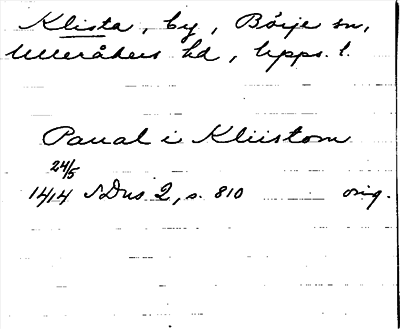 Klista, by, Börje sn,
Ulleråkers hd, Upps. l.
Paual i Kliistom
24/5
1414 SDns 2, s. 810 orig.